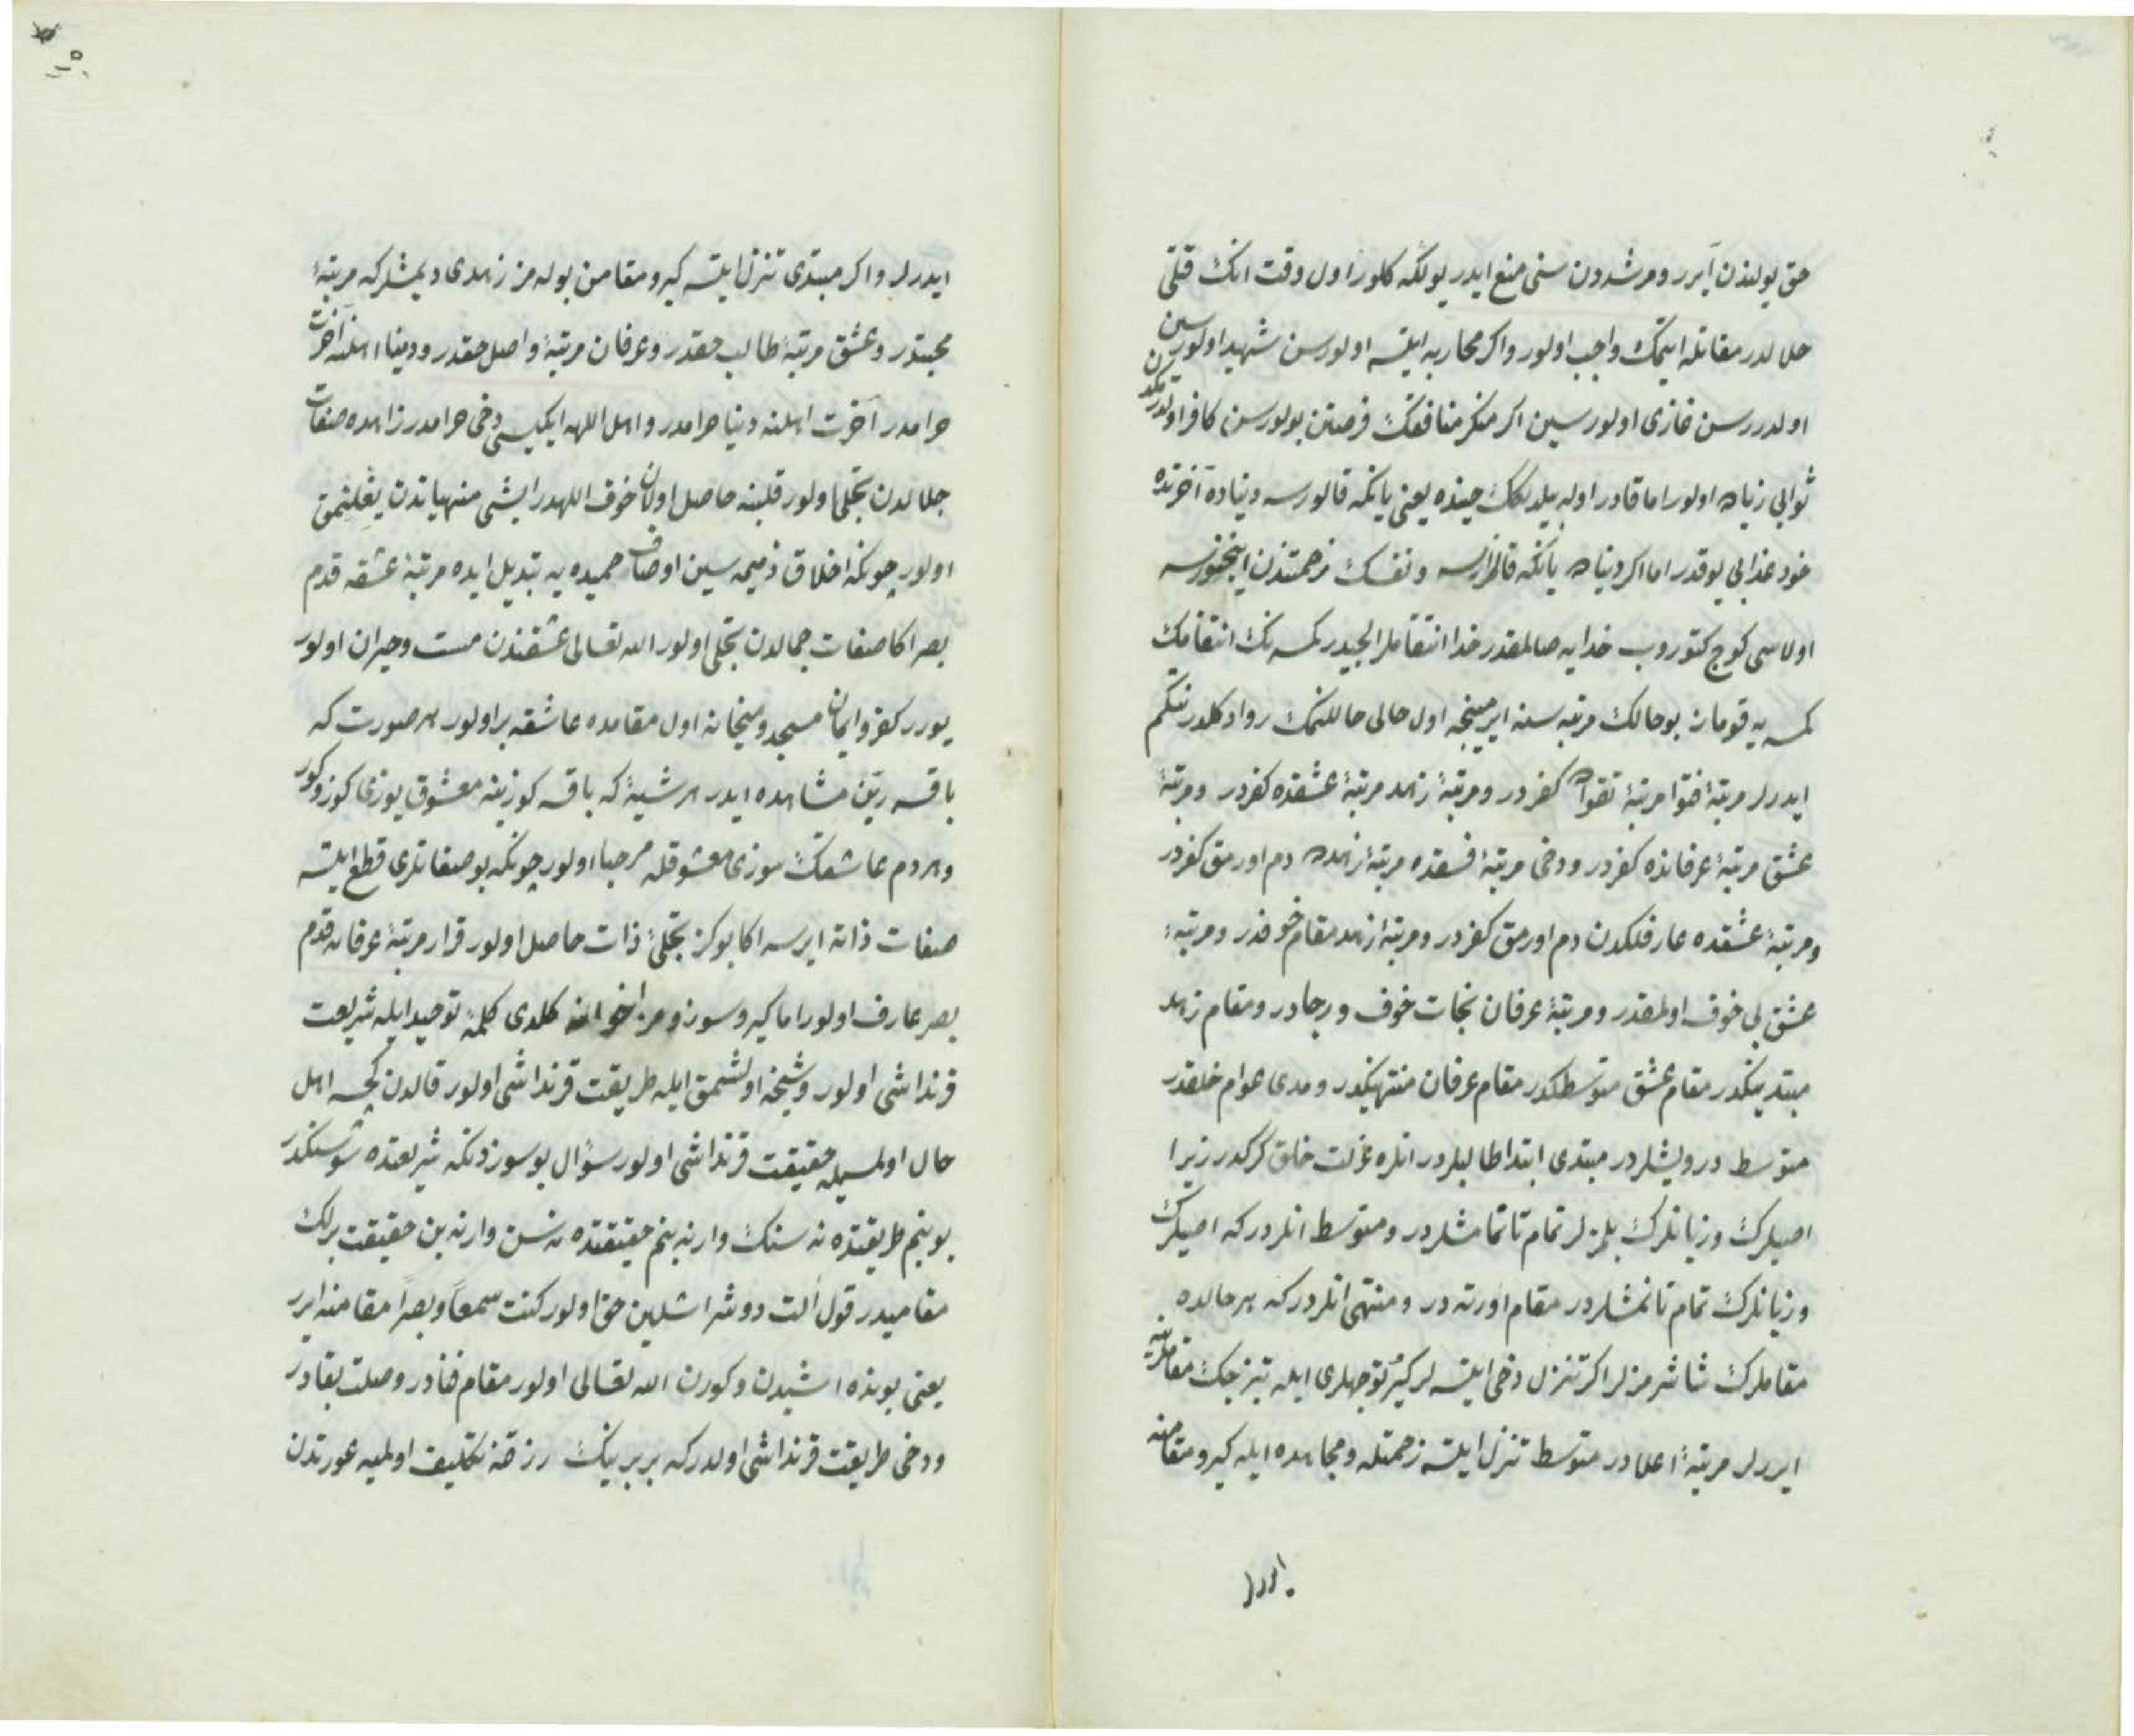 حق یولندن آیرر و مرشددن سنی منع ایدر یولکه کلور اول وقت انک قتلی
حلالدر مقاتله ایتمک واجب اولور و اکر محاربه ایتسه اولورسن شهید اولورسین
اولدررسن غازی اولورسین اکر منکر منافقک فرصتن بولورسن کافر اولدرمکدن
ثوابی زیاده اولور اما قادر اوله بیلدیکک حینده یعنی یانکه قالورسه دنیاده آخرتده
خود عذابی یوقدر اما اکر دنیاده یانکه قالمزسه و نفسک زحمتندن اینجنورسه
اولاسی کوج کتوروب خدایه صالمقدر خدا انتقاملر الیجیدر کمسه نک انتقامک
کمسه یه قوماز بو حالک مرتبه سنه ایرمینجه اول حالی حاللنمک روا دکلدر نتکم
ایدرلر مرتبۀ فتوا مرتبۀ تقواده کفردر و مرتبۀ زهد مرتبۀ عشقده کفردر و مرتبۀ
عشق مرتبۀ عرفانده کفردر و دخی مرتبۀ فسقده مرتبۀ زهده دم اورمق کفردر
و مرتبۀ عشقده عارفلکدن دم اورمق کفردر و مرتبۀ زهد مقام خوفدر و مرتبۀ
عشق بی خوف اولمقدر و مرتبۀ عرفان نجات خوف و رجادر و مقام زهد
مبتدینکدر مقام عشق متوسطکدر مقام عرفان منتهینکدر و مدی عوام خلقدر
متوسط درویشلردر مبتدی ابتدا طالبلردر انلره عزلت خلق کرکدر زیرا
اصیلرک و زیانلرک بلمزلر تمام تانمامشلردر و متوسط انلردر که اصیلرک
و زیانلرک تمام تانمشلردر مقام اورته در و منتهی انلردر که هر حالده
مقاملرک شاشرمزلر اکر تنزل دخی ایتسه لر کیرو توجهلری ایله تیزجک مقاملرینه
ایررلر مرتبۀ اعلادر متوسط تنزل ایتسه زحمتله و مجاهده ایله کیرو مقامنه
ایدرلر
ایدرلر و اکر مبتدی تنزل ایتسه کیرو مقامن بوله مز زهدی دیمشلرکه مرتبۀ
محبتدر و عشق مرتبۀ طالب حقدر و عرفان مرتبۀ واصل حقدر و دنیا اهلنه آخرت
حرامدر آخرت اهلنه دنیا حرامدر و اهل اللهه ایکیسی دخی حرامدر زاهده صفات
جلالدن تجلی اولور قلبنه حاصل اولان خوف اللهدر ایشی منهیاتدن یغلنمق
اولور چونکه اخلاق ذمیمه سین اوصاف حمیده یه تبدیل ایده مرتبۀ عشقه قدم
بصر اکا صفات جمالدن تجلی اولور الله تعالی عشقندن مست و حیران اولور
یورر کفر و ایمان مسجد و میخانه اول مقامده عاشقه بر اولور هر صورت که
باقسه ربّن مشاهده ایدر هر شیئه که باقسه کوزینه معشوق یوزی کوزوکور
و هر دم عاشقک سوزی معشوقله مرحبا اولور چونکه بو صفاتلری قطع ایتسه
صفات ذاته ایرسه اکا بو کز تجلئ ذات حاصل اولور قرار مرتبۀ عرفانه قدم
بصر عارف اولور اما کیرو سوزومز اخوانه کلدی کلمۀ توحید ایله شریعت
قرنداشی اولور و شیخه اولشمق ایله طریقت قرنداشی اولور قالدن کچسه اهل
حال اولمسیله حقیقت قرنداشی اولور سؤال بو سوزدنکه شریعتده شو سنکدر
بو بنم طریقتده نه سنک وار نه بنم حقیقتده نه سن وار نه بن حقیقت برلک
مقامیدر قول الت دوشر اشلین حق اولور کنت سمعا و بصرا مقامنه ایرر
یعنی بونده اشیدن و کورن الله تعالی اولور مقام فنادر وصلت بقادر
و دخی طریقت قرنداشی اولدر که بر برینک رزقنه تکلیف اولمیه عورتدن